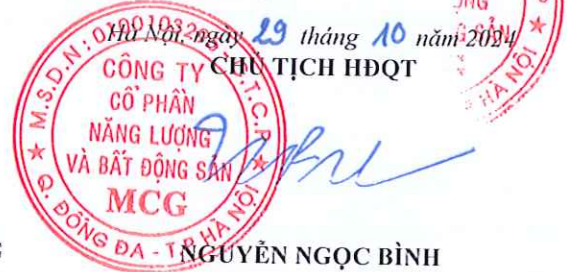 Hà Nội, ngày 29 tháng 10 năm 2024
CHỦ TỊCH HĐQT
CÔNG TY
CỔ PHẦN
NĂNG LƯỢNG
VÀ BẤT ĐỘNG SẢN
MCG
Q. ĐỐNG ĐA - T.P HÀ NỘI
NGUYỄN NGỌC BÌNH